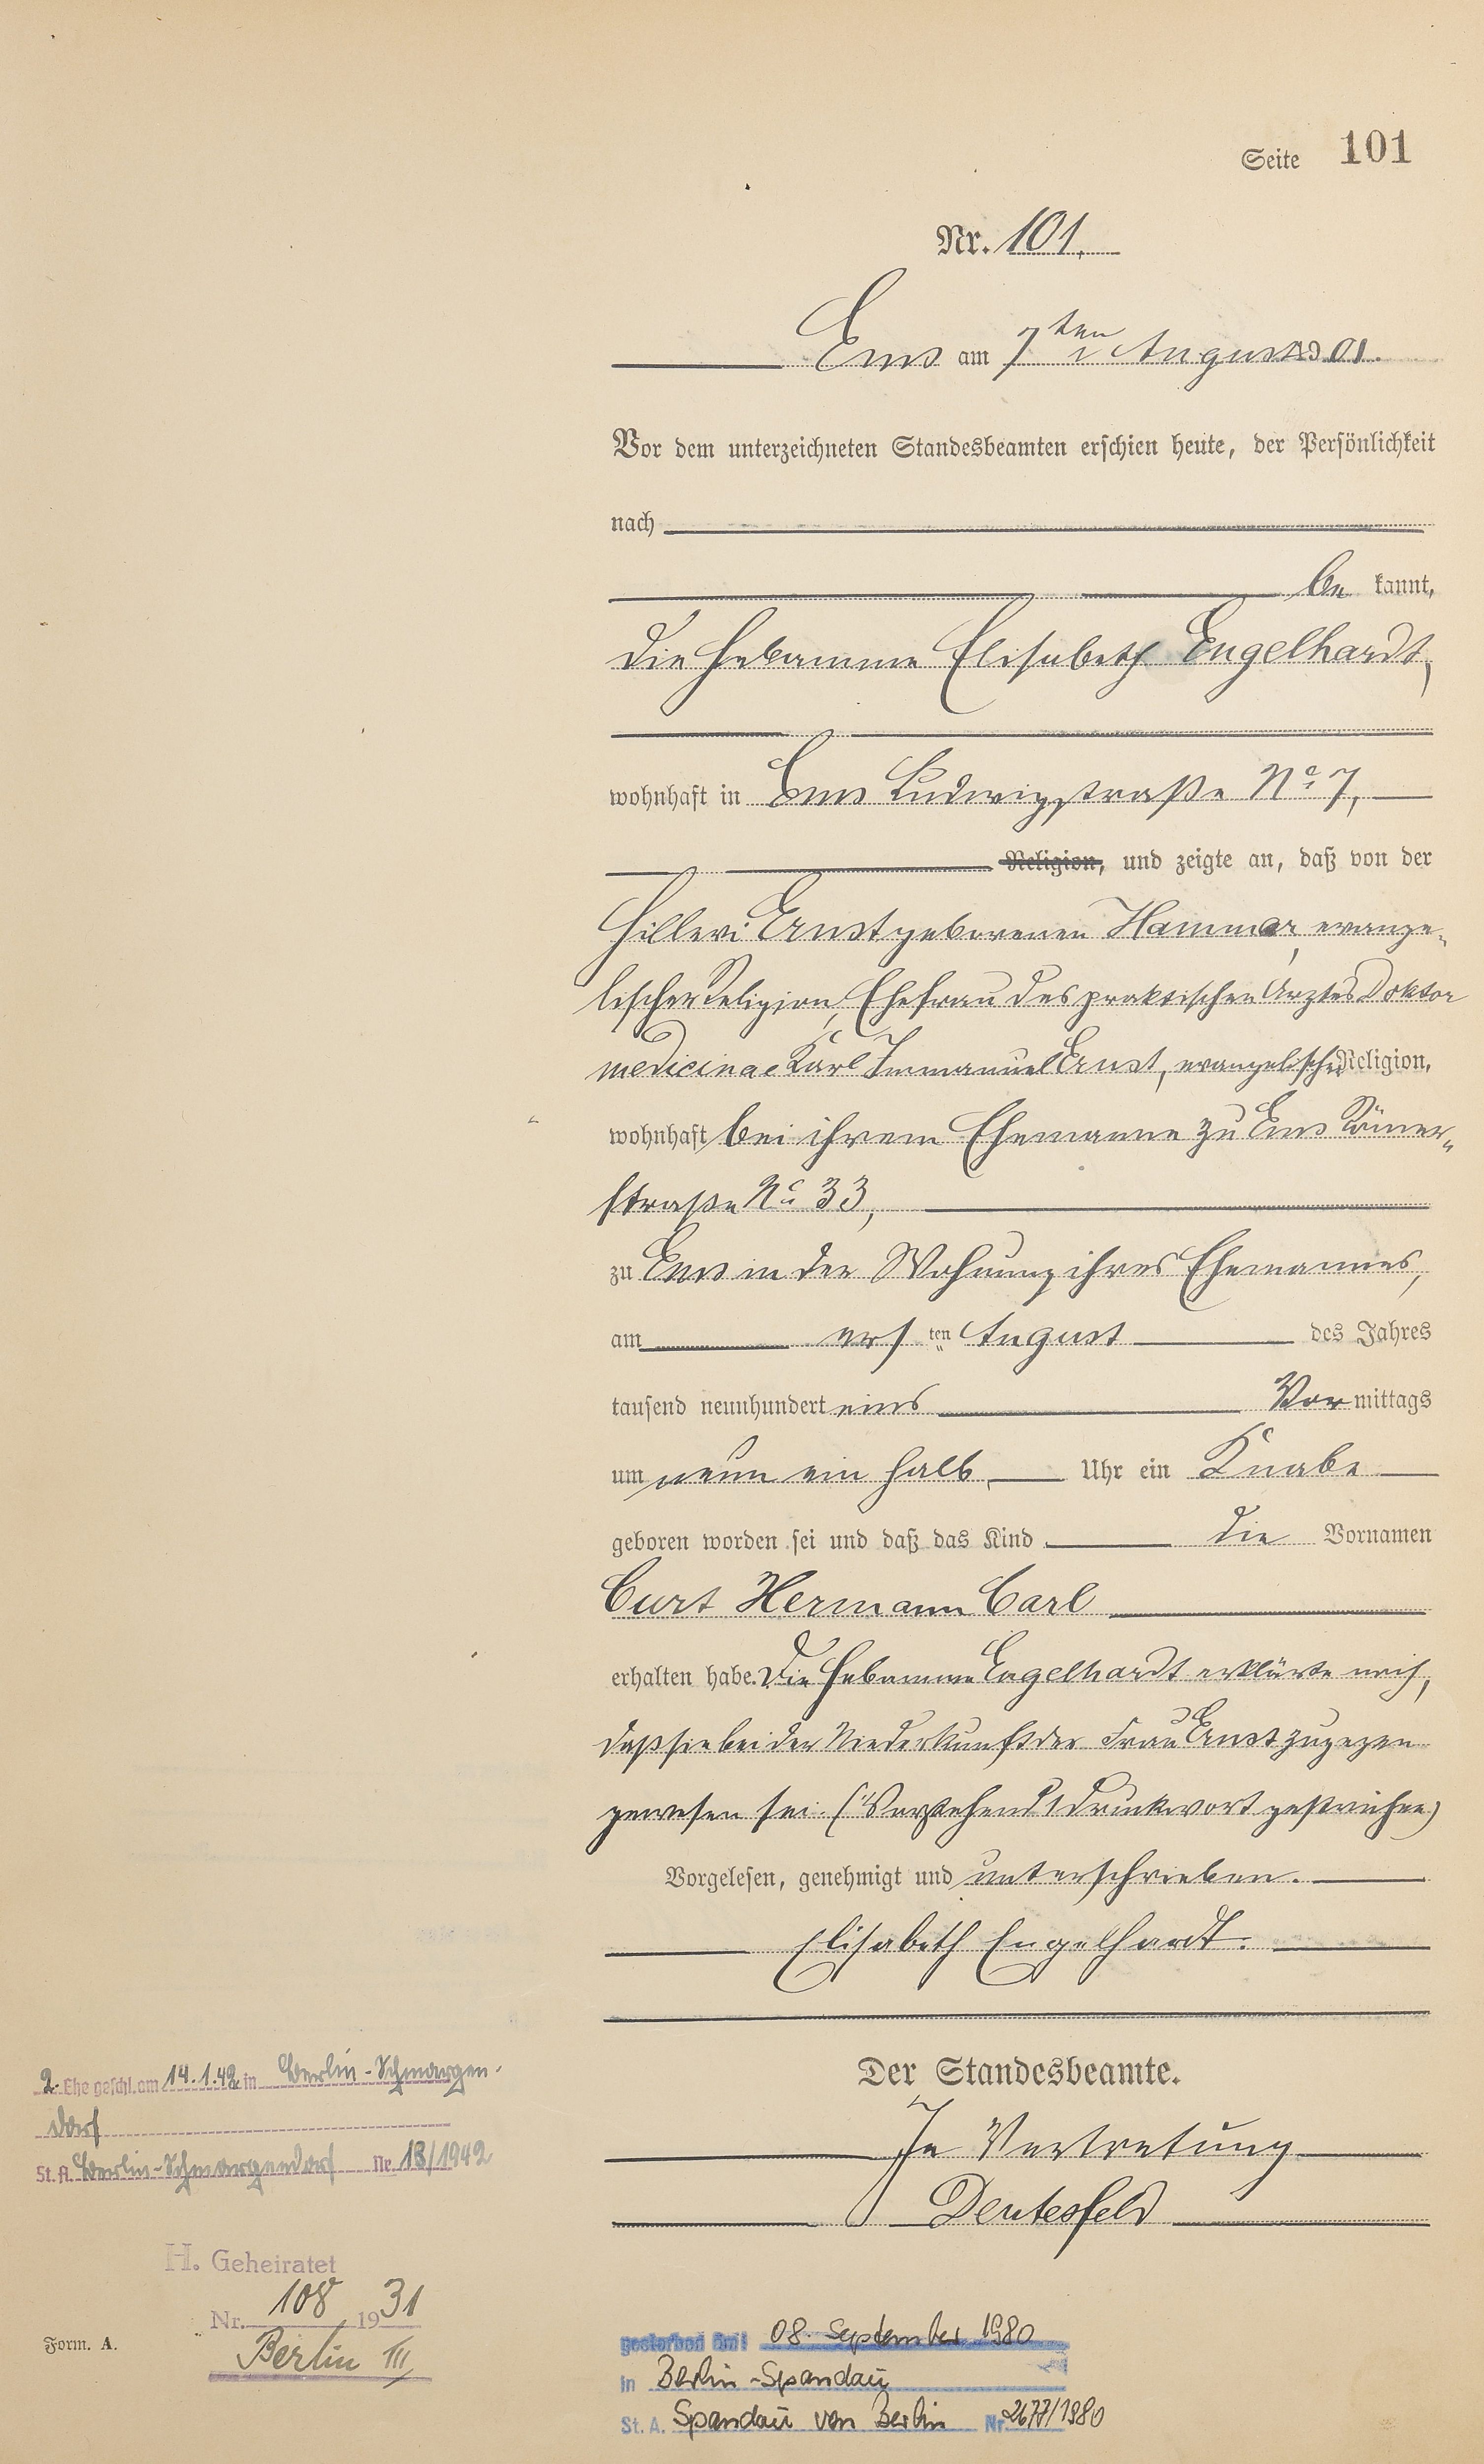 Seite 101
Nr. 101.
Ems am 7ten August 1901.
Vor dem unterzeichneten Standesbeamten erschien heute, der Persönlichkeit
nach
be kannt,
die Hebamme Elisabeth Engelhardt,
wohnhaft in Ems Ludwigstraße No 7,
Religion, und zeigte an, daß von der
Hillevi Ernst geborenen Hammar, evange-
lischer Religion, Ehefrau des praktischen Arztes Doktor
medicinae Karl Immanuel Ernst, evangelischer Religion,
wohnhaft bei ihrem Ehemanne zu Ems Römer-
straße No 33,
zu Ems in der Wohnung ihres Ehemannes,
am ersten August des Jahres
tausend neunhundert eins Vormittags
um neun ein halb Uhr ein Knabe
geboren worden sei und daß das Kind die Vornamen
Curt Hermann Carl
erhalten habe. Die Hebamme Engelhardt erklärte noch,
daß sie bei der Niederkunft der Frau Ernst zugegen
gewesen sei. (Vorstehend 1 Druckwort gestrichen)
Vorgelesen, genehmigt und unterschrieben.
Elisabeth Engelhardt.
Der Standesbeamte.
In Vertretung
Deutesfeld
2. Ehe geschl. am 14.1.42 in Berlin-Schmargen-
dorf
St. A. Berlin-Schmargendorf Nr. 18/1942
H. Geheiratet
Nr. 108 1931
Berlin III
Form. A.
gestorben am: 08. September 1980
in Berlin-Spandau
St. A. Spandau von Berlin Nr. 2677/1980